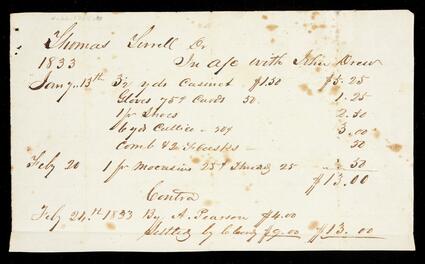 Thomas Terrell Dr
1833 In a/c with John Drew
Jany. 13th 3½ yds Casinet $1.50 $5.25
Gloves 75¢ Cards 50. 1.25
1 pr Shoes 2.50
6 yd Callico - 50¢ 3.00
Comb & 2 50
Feby 20 1 pr Mocasins 25¢ Thread 25 .50
$13.00
Contra
Feby 24th 1833 By A. Pearson $4.00
Settled by $9.00 $13.00